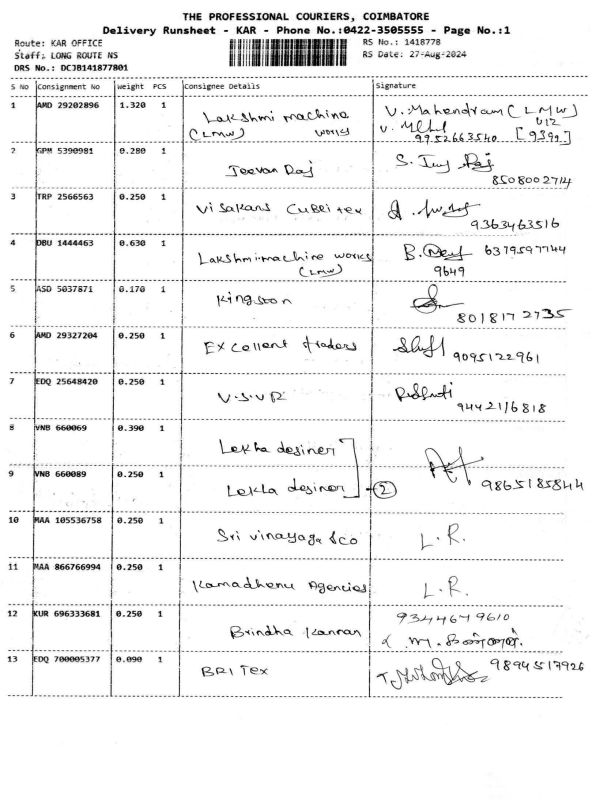 THE PROFESSIONAL COURIERS, COIMBATORE
Delivery Runsheet - KAR - Phone No.:0422-3505555 - Page No.:1
Route: KAR OFFICE RS No.: 1418778
Staff: LONG ROUTE NS RS Date: 27-Aug-2024
DRS No.: DCJB141877801
S No Consignment No Weight PCS Consignee Details Signature
1 AMD 29202896 1.320 1 Lakshmi machine works (LMW) V. Mahendram (LMW)
U12
9952663540 [9399]
2 GPM 5390981 0.280 1 Jeevan Raj S. Raj
8508002714
3 TRP 2566563 0.250 1 Visakans Cubei tex
9363463516
4 DBU 1444463 0.630 1 Lakshmi machine works (LMW) B. 6379597744
9649
5 ASD 5037871 0.170 1 Kingston
8018172735
6 AMD 29327204 0.250 1 Excellent traders
9095122961
7 EDQ 25648420 0.250 1 V.S.V.R
9442116818
8 VNB 660069 0.390 1 Lekha desiner
9 VNB 660089 0.250 1 Lekha desiner 2 9865185844
10 MAA 105536758 0.250 1 Sri vinayaga &co L.R.
11 MAA 866766994 0.250 1 Kamadhenu Agencies L.R.
12 KUR 696333681 0.250 1 Brindha Kannan 9344679610
13 EDQ 700005377 0.090 1 BRI Tex 9894517926